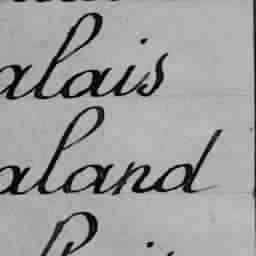 alais
aland